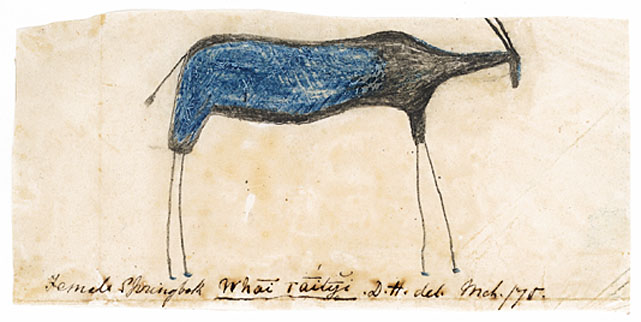 Female Springbok Whai ráityi. D.H. del. Mch./75.